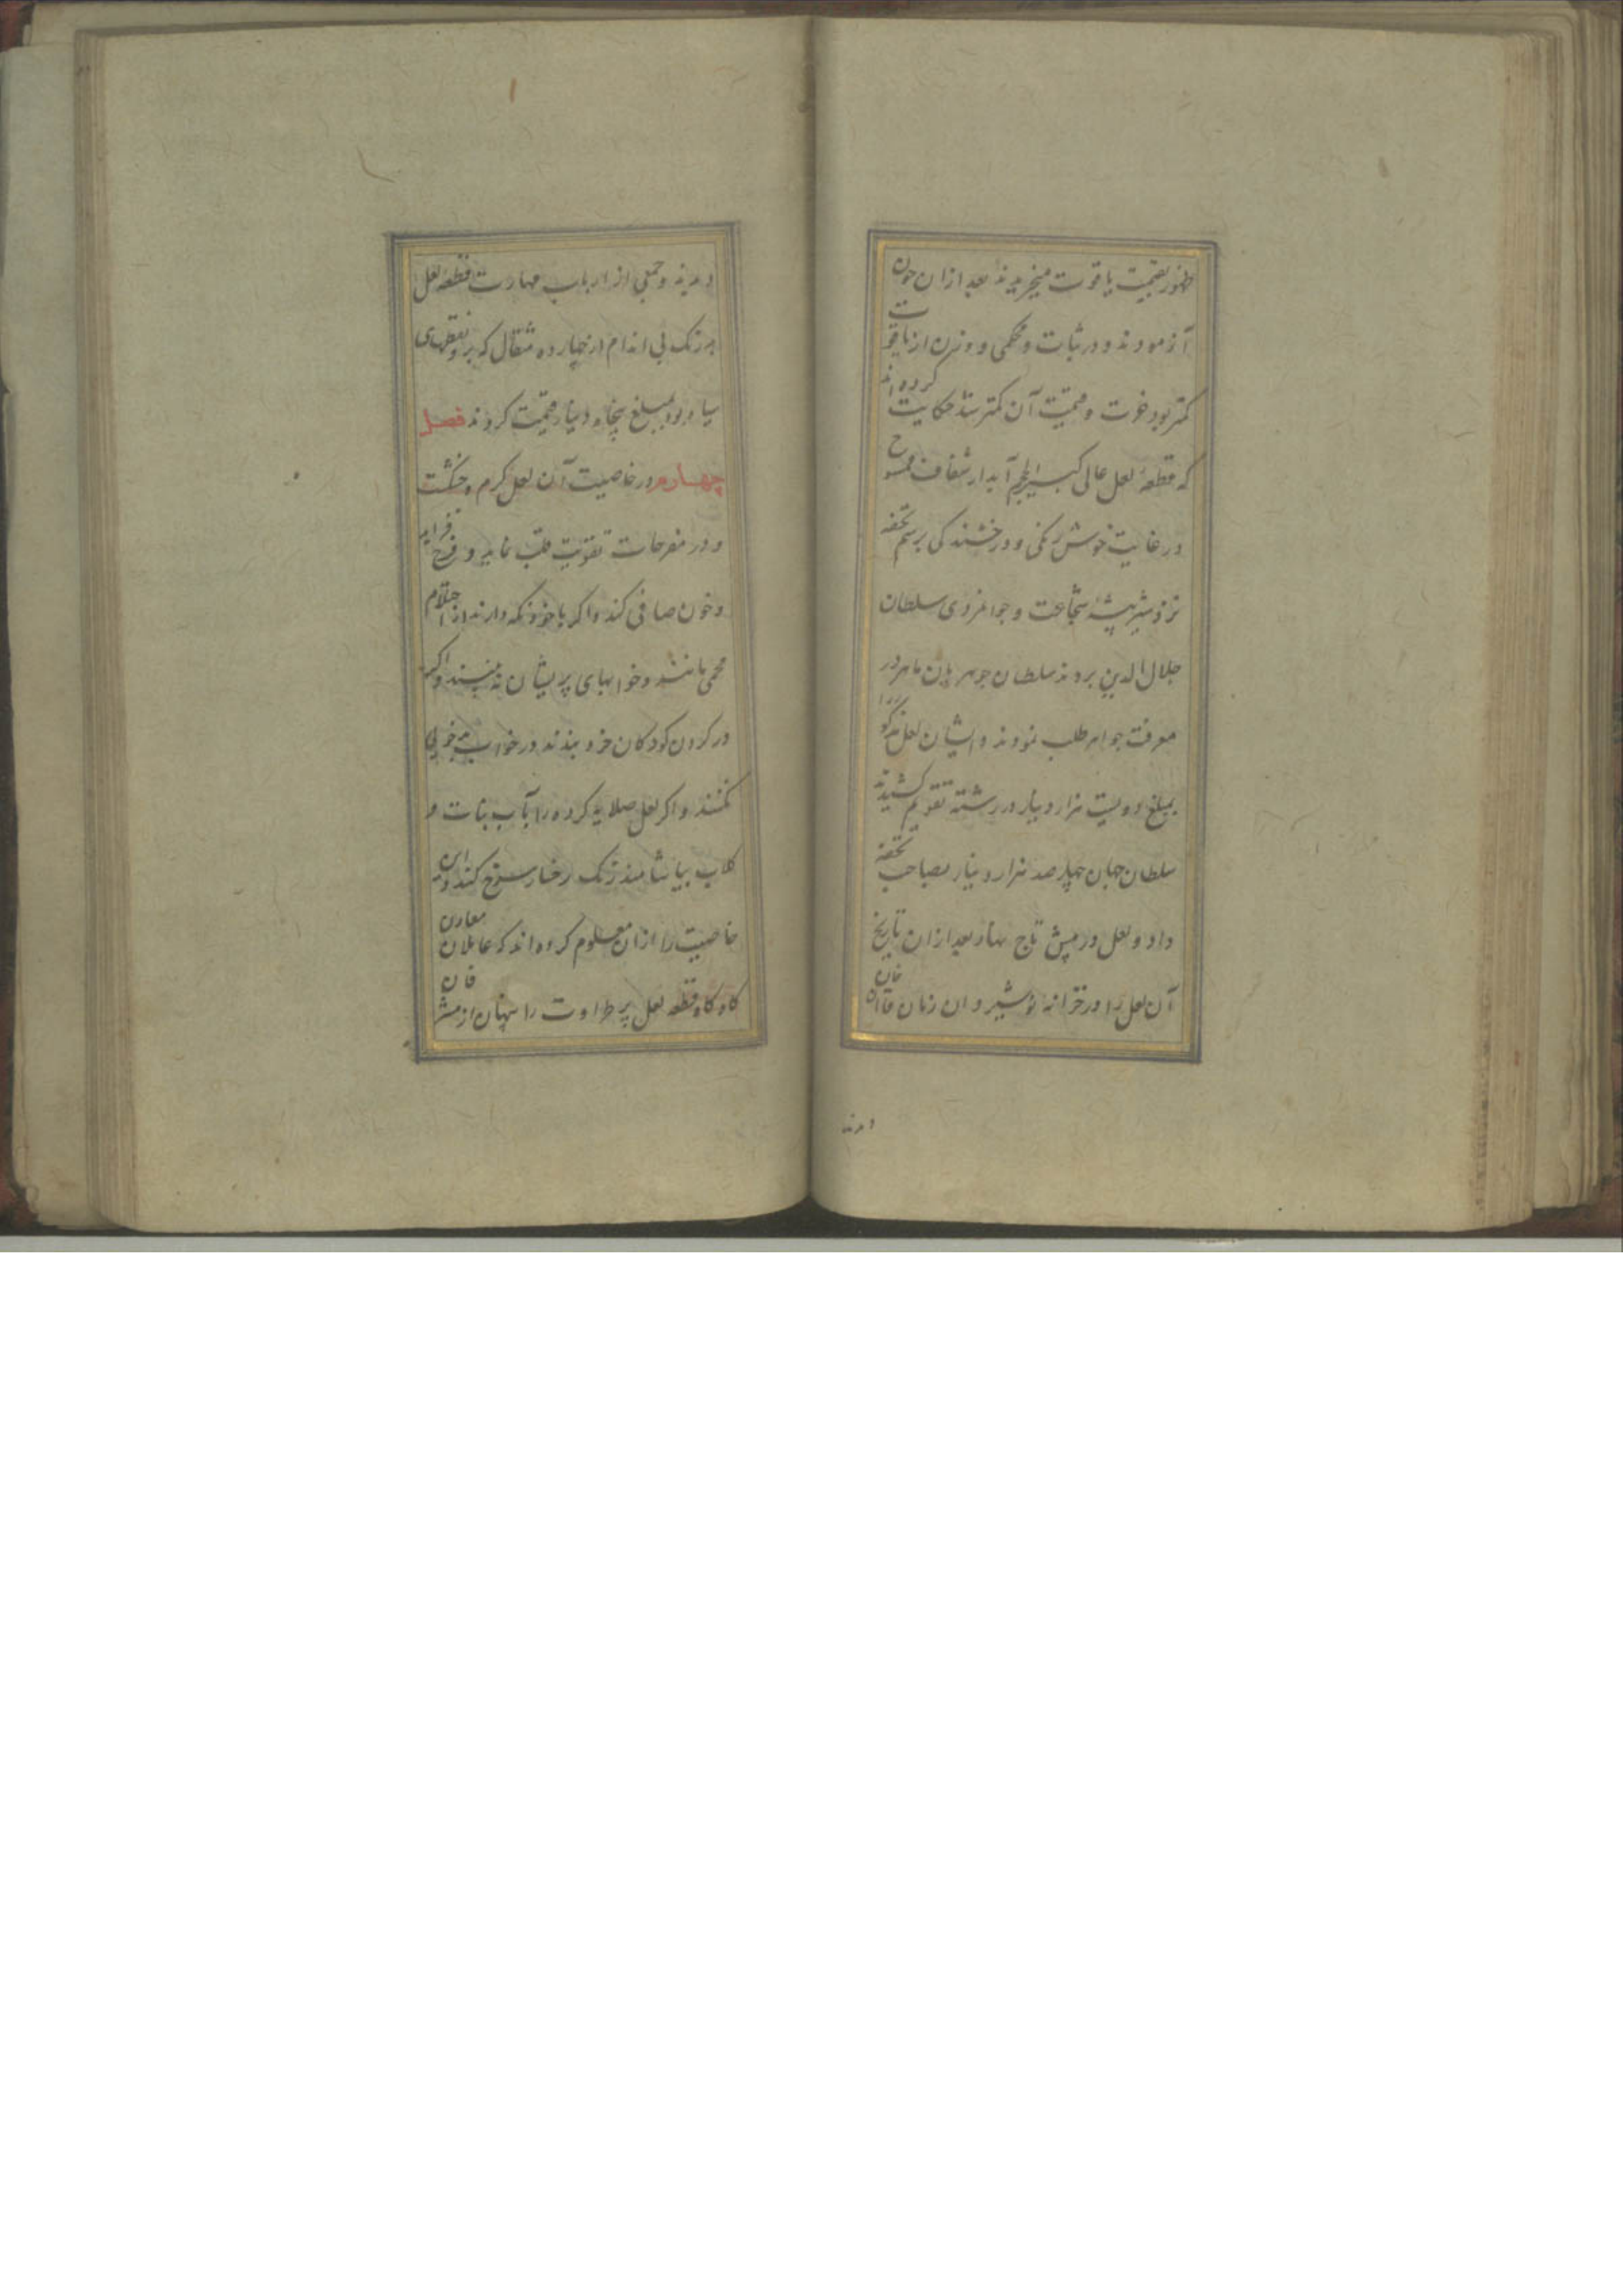 ظهور بقیمت یاقوت میخریدند بعد ازان چون
آزمودند و در ثبات و محکمی و وزن از یاقوت
کمتر بود خوت و قیمت آن کمتر شد حکایت کرده اند
که قطعه لعل عالی کبیر الحجم آبدار شفاف ممسوح
در غایت خوش رنگی و درخشندگی برسم تحفه
نزد شیر بیشه شجاعت و جوانمردی سلطان
جلال الدین بردند سلطان جوهریان ماهر در
معرفت جواهر طلب نمودند و ایشان لعل مذکور را
بمبلغ دویست هزار دینار در رشته تقویم کشیدند
سلطان جهان چهار صد هزار دینار بصاحب تحفه
داد و لعل در پیش تاج نهاد بعد ازان تاریخ
آن لعل را در خزانه نوشیروان زمان قاآن خان
دیدند
دیدند و جمعی از ارباب مهارت قطعه لعل
بدرنک بی اندام از چهارده مثقال که برو نقطهای
سیاه بود بمبلغ پنجاه دینار قیمت کردند فصل
چهارم در خاصیت آن لعل کرم و خشکست
و در مفرحات تقویت قلب نماید و فرح فزاید
و خون صافی کند و اکر با خود نکه دارند از احتلام
محمی باشند و خوابهای پریشان نه بینند و اکر
در کردن کودکان خرد بندند در خواب بدخویی
نکنند و اکر لعل صلایه کرده را بآب نبات و
کلاب بیاشامند رنک رخسار سرخ کند و این
خاصیت را ازان معلوم کرده اند که عاملان معادن
کاه کاه قطعه لعل پر طراوت را پنهان از مشرفان